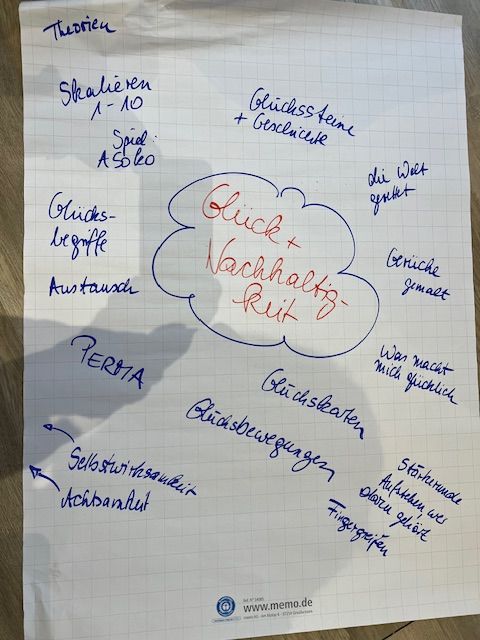 Theorien
Skalieren
1-10
Spiel:
ASOKO
Glücks-
begriffe
Austausch
PERMA
Selbstwirksamkeit
Achtsamkeit
Glückssteine
+ Geschichte
die Welt
gerettet
Gerüche
gemalt
Was macht
mich glücklich
Glück +
Nachhaltig-
keit
Glückskarten
Glücksbewegungen
Stärkerunde
Aufstehen, wer
dazu gehört
Fingergreifen
www.memo.de